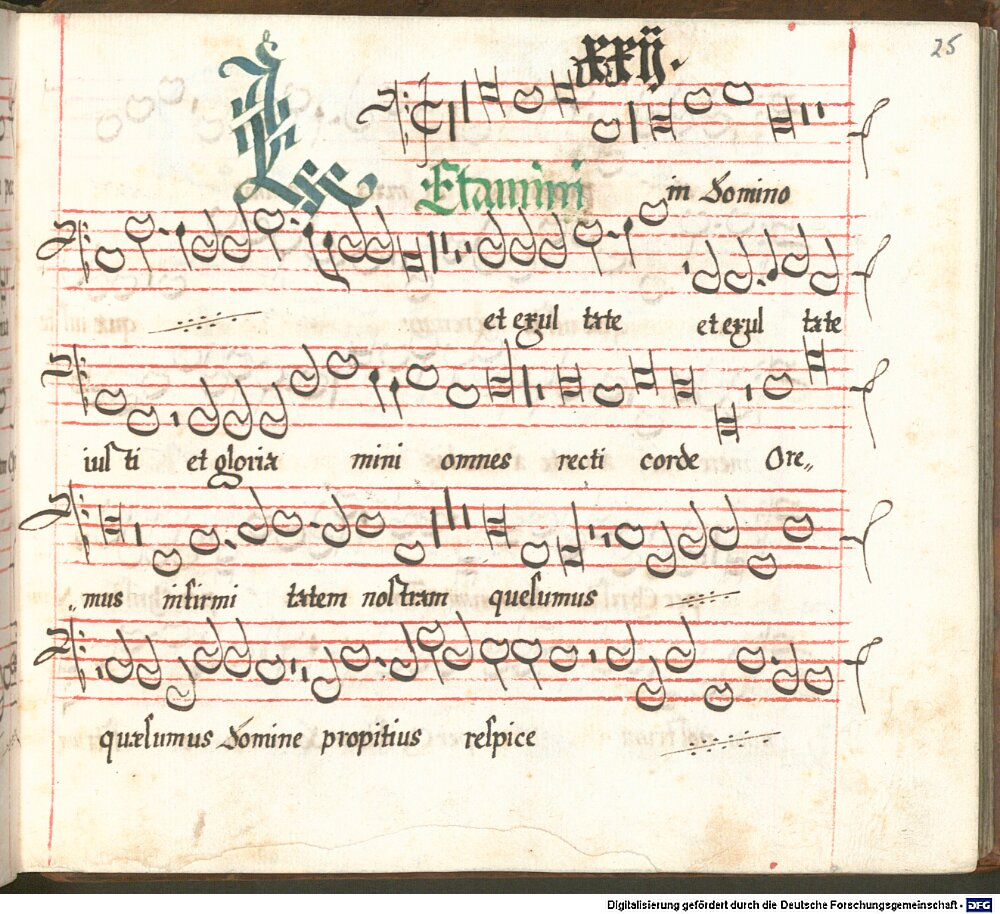 xxij.
25
Etamini in Domino
et exul tate et exul tate
iusti et gloria mini omnes recti corde Ore„
„mus infirmi tatem nostram quesumus
quæsumus Domine propitius respice
Digitalisierung gefördert durch die Deutsche Forschungsgemeinschaft - DFG